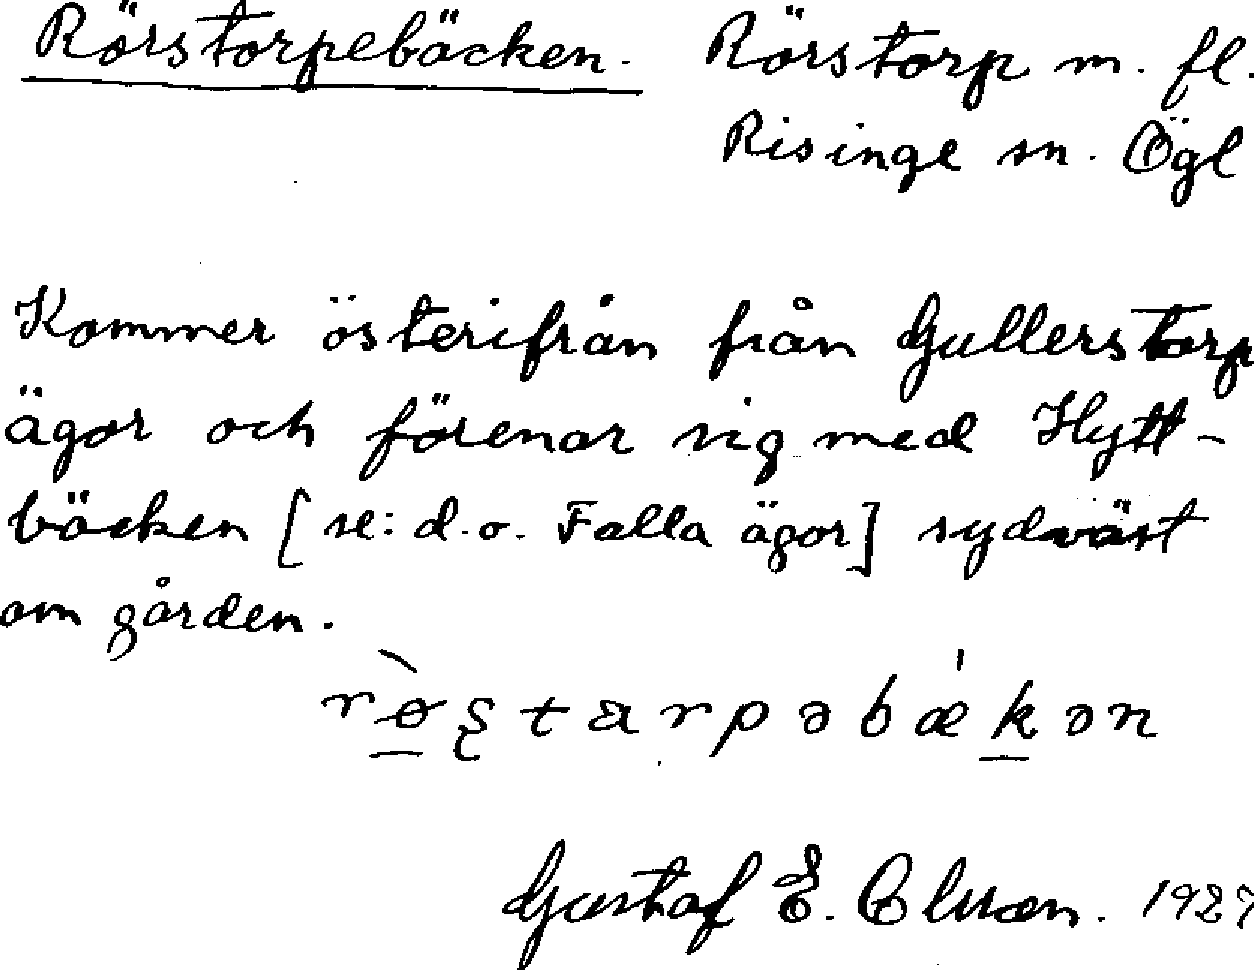 Rörstorpebäcken. Rörstorp m. fl.
Risinge sn. Ögl
Kommer österifrån från Gullerstorp
ägor och förenar sig med Hytt-
bäcken [se: d.o. Falla ägor] sydväst
om gården.
rø̀ʂtarpəbækən
Gustaf E. Clusen. 1927